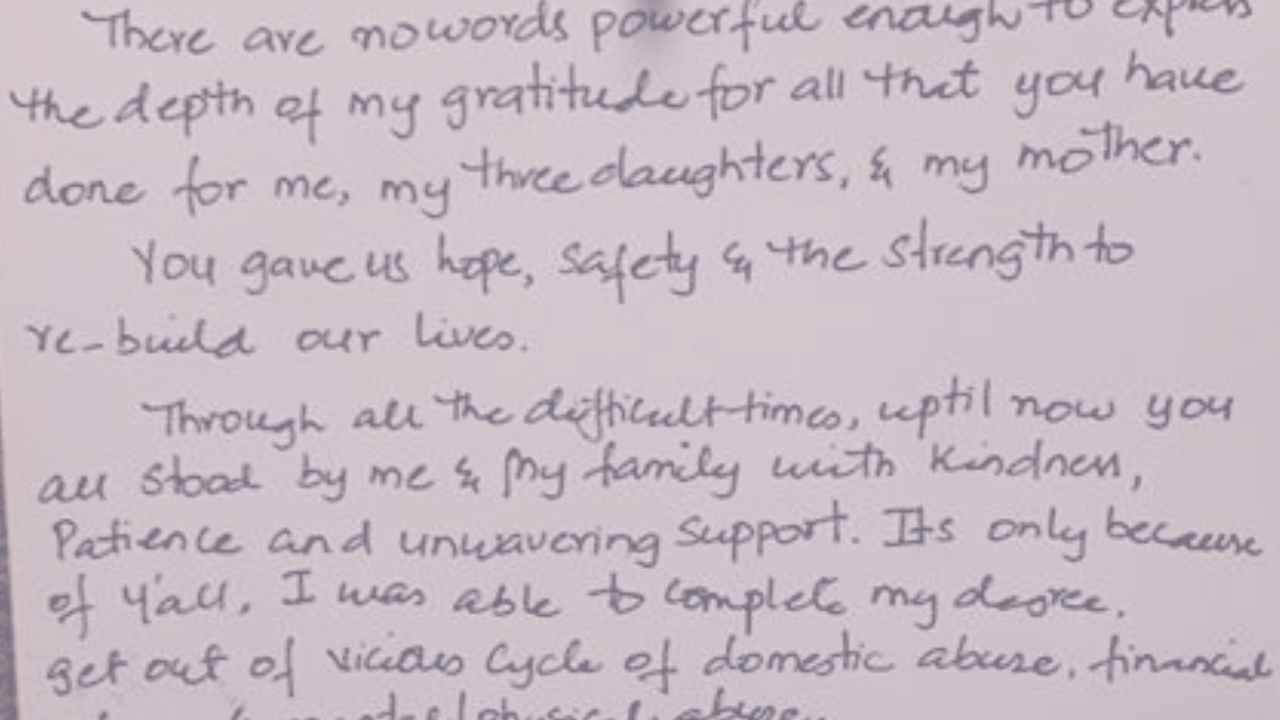 There are no words powerful enough to express
the depth of my gratitude for all that you have
done for me, my three daughters, & my mother.
You gave us hope, safety & the strength to
re-build our lives.
Through all the difficult times, uptil now you
all stood by me & My family with Kindness,
Patience and unwavering support. Its only because
of y'all, I was able to complete my degree,
get out of vicious cycle of domestic abuse, financial
mental/physical abuse